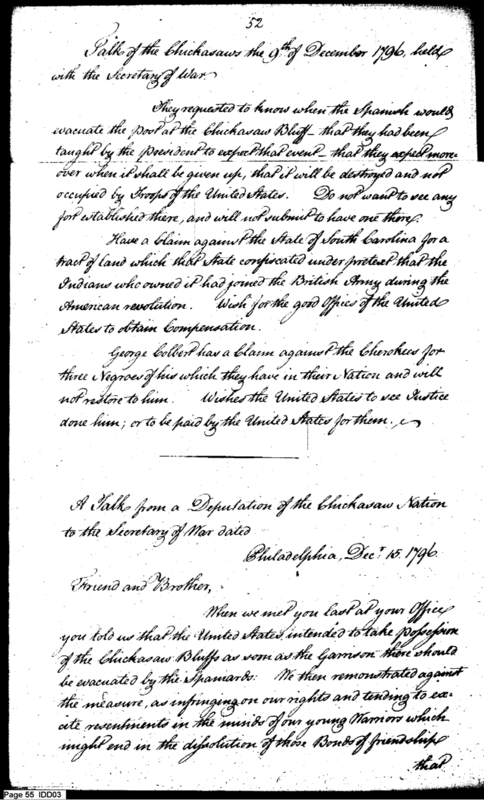 52
Talk of the Chickasaws the 9th of December 1796. held
with the Secretary of War.
They requested to know when the Spanish would
evacuate the post at the Chickasaw Bluff – that they had been
taught by the President to expect that event – that they expect more-
over when it shall be given up, that it will be destroyed and not
occupied by Troops of the United States. Do not want to see any
fort established there, and will not submit to have one there.
Have a Claim against the State of South Carolina for a
tract of land which that State confiscated under pretext that the
Indians who owned it had joined the British Army during the
American revolution. Wish for the good Offices of the United
States to obtain Compensation.
George Colbert has a Claim against the Cherokees for
three Negroes of his which they have in their Nation and will
not restore to him. Wishes the United States to see Justice
done him; or to be paid by the United States for them.
A Talk from a Deputation of the Chickasaw Nation
to the Secretary of War dated
Philadelphia, Decr. 15. 1796.
Friend and Brother,
When we met you last at your Office
you told us that the United States intended to take possession
of the Chickasaw Bluffs as soon as the Garrison there should
be evacuated by the Spaniards: We then remonstrated against
the measure, as infringing on our rights and tending to ex-
cite resentments in the minds of our young Warriors which
might end in the dissolution of those Bonds of friendship
that
Page 55 IDD03